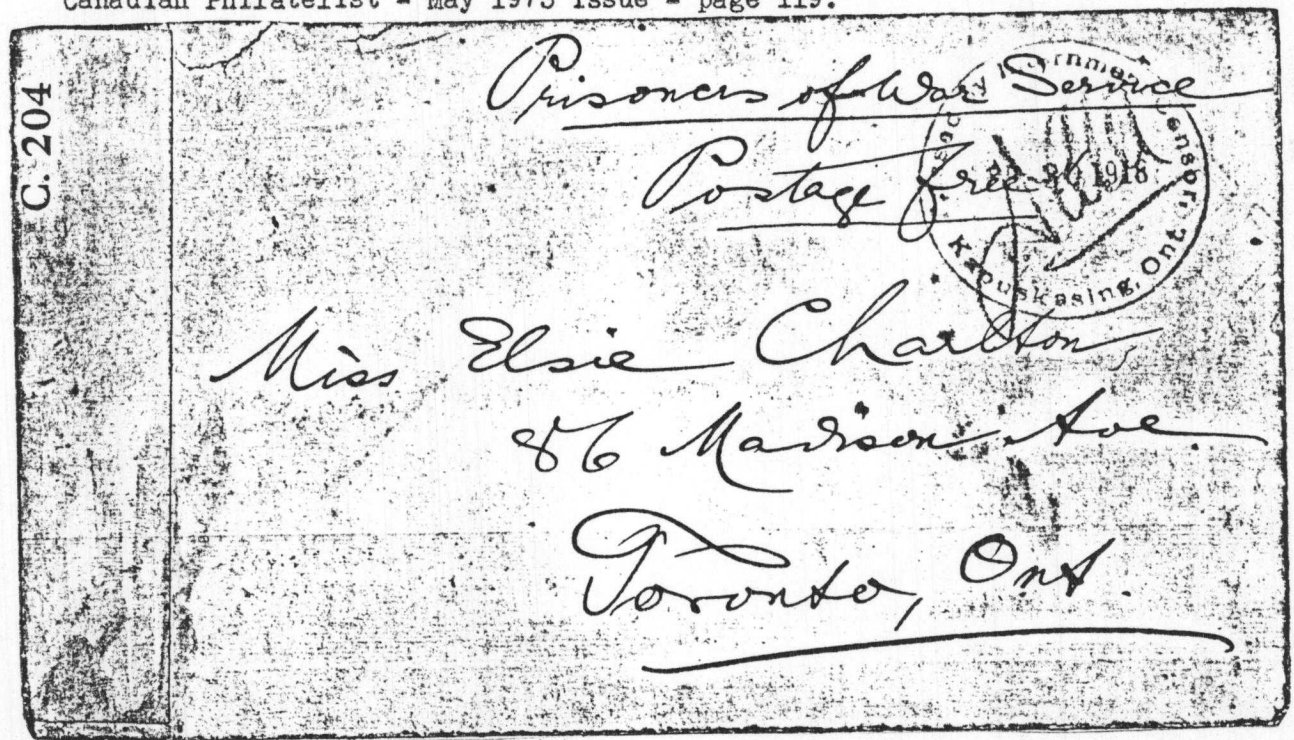 Canadian Philatelist - May 1975 issue - page 119.
C. 204
Prisoners of War Service
Postage free
1918
Kapuskasing, Ont.
Miss Elsie Charlton,
86 Madison Ave.
Toronto, Ont.